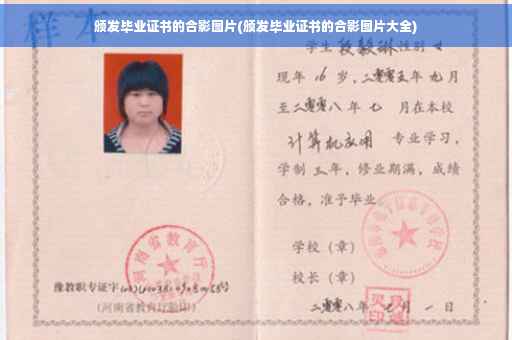 颁发毕业证书的合影图片(颁发毕业证书的合影图片大全)
样本
学生段毅琳性别女
现年16岁，二零零五年九月
至二零零八年七月在本校
计算机应用 专业学习，
学制三年，修业期满，成绩
合格，准予毕业。
学校（章）
校长（章）
二零零八年七月一日
河南省教育厅
豫教职专证字
(河南省教育厅验印)